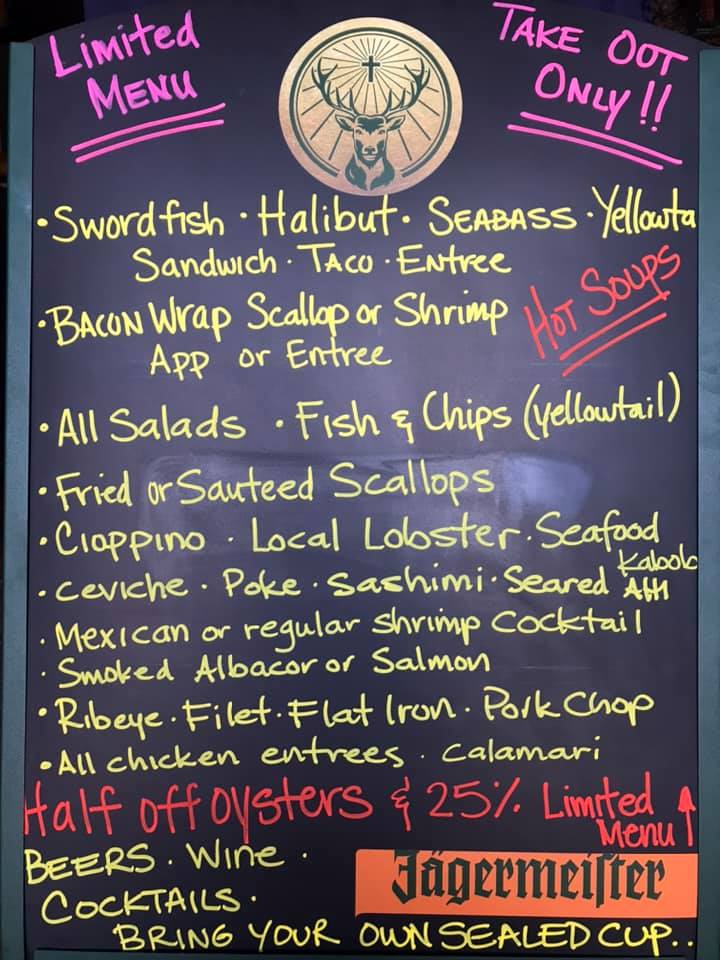 Limited MENU
TAKE OUT ONLY!!
•Swordfish • Halibut • SEABASS • Yellowta
Sandwich • TACO • Entree
HOT SOUPS
•BACON Wrap Scallop or Shrimp
App or Entree
•All Salads • Fish & Chips (yellowtail)
•Fried or Sauteed Scallops
•Cioppino • Local Lobster • Seafood Kabob
•Ceviche • Poke • Sashimi • Seared AHI
•Mexican or regular Shrimp Cocktail
•Smoked Albacor or Salmon
•Ribeye • Filet • Flat Iron • Pork Chop
•All chicken entrees • Calamari
Half off oysters & 25% Limited Menu ↑
BEERS • Wine •
COCKTAILS •
Jägermeiſter
BRING YOUR OWN SEALED CUP..